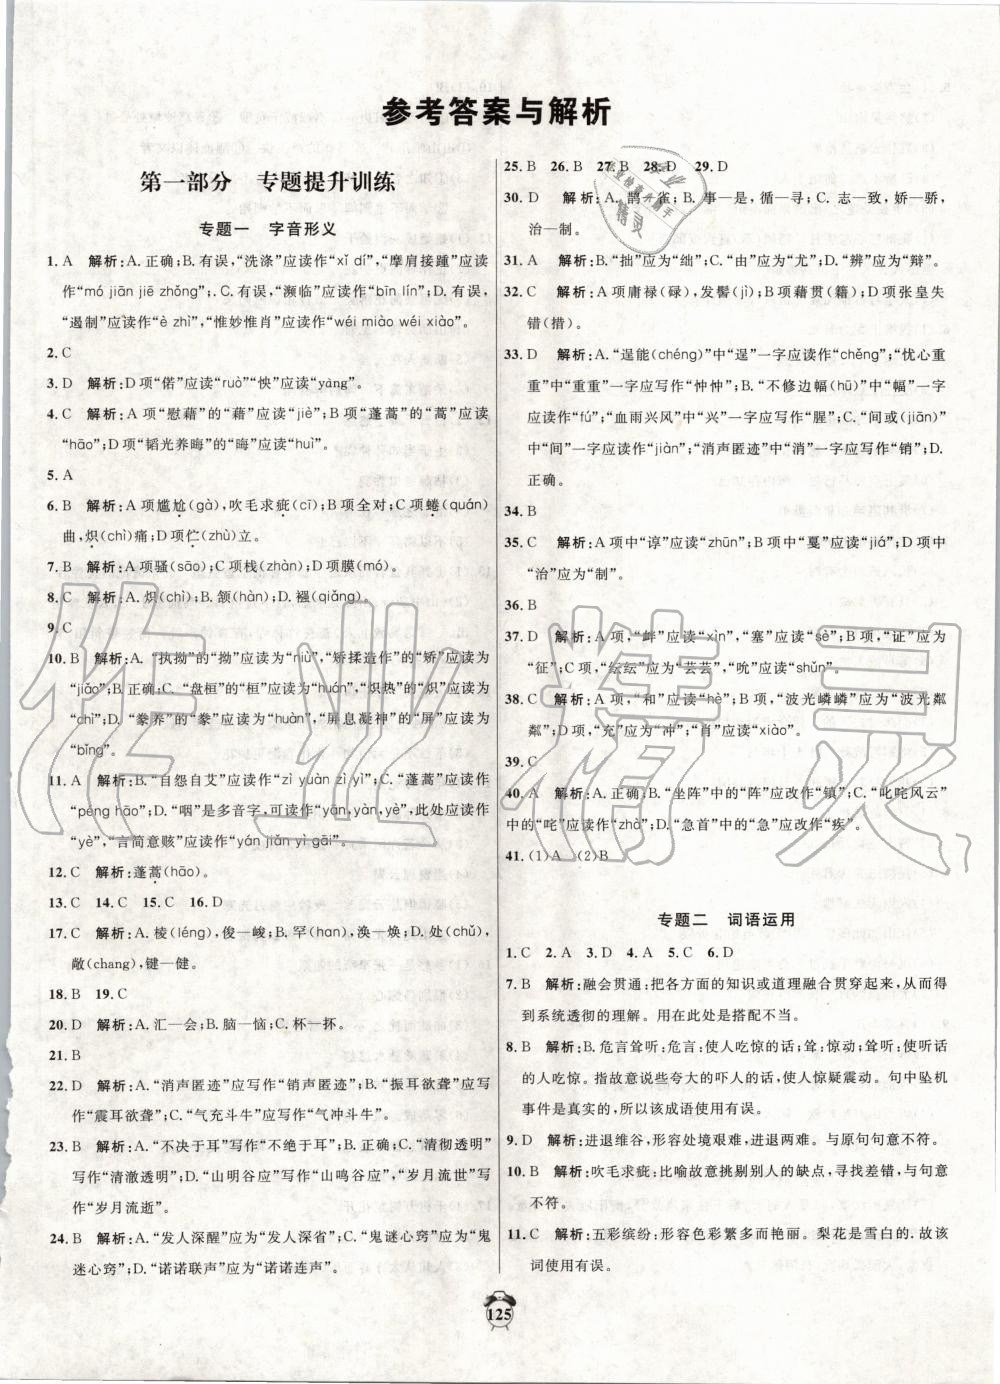 参考答案与解析
第一部分 专题提升训练
专题一 字音形义
1. A 解析:A. 正确;B. 有误,“洗涤”应读作“xǐ dí”,“摩肩接踵”应读
作“mó jiān jiē zhǒng”;. C. 有误,“濒临”应读作“bīn lín”;D. 有误,
“遏制”应读作“è zhì”,“惟妙惟肖”应读作“wéi miào wéi xiào”。
2. C
3. D 解析:D 项“偌”应读“ruò”“怏”应读“yàng”。
4. C 解析:A 项“慰藉”的“藉”应读“jiè”;B 项“蓬蒿”的“蒿”应读
“hāo”;D 项“韬光养晦”的“晦”应读“huì”。
5. A
6. B 解析:A 项尴尬(gà),吹毛求疵(cī);B 项全对;C 项蜷(quán)
曲,炽(chì)痛;D 项伫(zhù)立。
7. B 解析:A 项骚(sāo);C 项栈(zhàn);D 项膜(mó)。
8. C 解析:A. 炽(chì);B. 颔(hàn);D. 襁(qiǎng)。
9. C
10. B 解析:A. “执拗”的“拗”应读为“niù”,“矫揉造作”的“矫”应读为
“jiǎo”;B. 正确;C. “盘桓”的“桓”应读为“huán”,“炽热”的“炽”应读为
“chì”;D. “豢养”的“豢”应读为“huàn”,“屏息凝神”的“屏”应读为
“bǐng”。
11. A 解析:A. “自怨自艾”应读作“zì yuàn zì yì”;C. “蓬蒿”应读作
“péng hāo”;B. “咽”是多音字,可读作“yān,yàn,yè”,此处应读作
“yè”,“言简意赅”应读作“yán jiǎn yì gāi”。
12. C 解析:蓬蒿(hāo)。
13. C 14. C 15. C 16. D
17. C 解析:A. 棱(léng),俊一峻;B. 罕(han),涣一焕;D. 处(chǔ),
敞(chang),键一健。
18. B 19. C
20. D 解析:A. 汇—会;B. 脑—恼;C. 杯—抔。
21. B
22. D 解析:A. “消声匿迹”应写作“销声匿迹”;B. “振耳欲聋”应写
作“震耳欲聋”;C. “气充斗牛”应写作“气冲斗牛”。
23. B 解析:A. “不决于耳”写作“不绝于耳”;B. 正确;C. “清彻透明”
写作“清澈透明”;D. “山明谷应”写作“山鸣谷应”,“岁月流世”写
作“岁月流逝”。
24. B 解析:A. “发人深醒”应为“发人深省”;C. “鬼谜心窍”应为“鬼
迷心窍”;D. “诺诺联声”应为“诺诺连声”。
25. B 26. B 27. B 28. D 29. D
30. D 解析:A. 鹊—雀;B. 事—是,循—寻;C. 志—致,娇—骄,
治—制。
31. A 解析:B. “拙”应为“绌”;C. “由”应为“尤”;D. “辨”应为“辩”。
32. C 解析:A 项庸禄(碌),发髻(jì);B 项藉贯(籍);D 项张皇失
错(措)。
33. D 解析:A. “逞能(chéng)”中“逞”一字应读作“chěng”;“忧心重
重”中“重重”一字应写作“忡忡”;B. “不修边幅(hū)”中“幅”一字
应读作“fú”;“血雨兴风”中“兴”一字应写作“腥”;C. “间或(jiān)”
中“间”一字应读作“jiàn”;“消声匿迹”中“消”一字应写作“销”;D.
正确。
34. B
35. C 解析:A 项中“谆”应读为“zhūn”;B 项中“戛”应读为“jiá”;D 项中
“治”应为“制”。
36. B
37. D 解析:A 项,“衅”应读为“xìn”,“塞”应读为“sè”;B 项,“证”应为
“征”;C 项,“纭纭”应为“芸芸”,“吮”应读为“shǔn”。
38. C 解析:A 项,“和”应读“hè”;B 项,“波光嶙嶙”应为“波光粼
粼”;D 项,“充”应为“冲”;“肖”应读为“xiào”。
39. C
40. A 解析:A. 正确;B. “坐阵”中的“阵”应改作“镇”;C. “叱咤风云”
中的“咤”应读作“zhà”;D. “急首”中的“急”应改作“疾”。
41. (1)A (2)B
专题二 词语运用
1. C 2. A 3. D 4. A 5. C 6. D
7. B 解析:融会贯通:把各方面的知识或道理融合贯穿起来,从而得
到系统透彻的理解。用在此处是搭配不当。
8. B 解析:危言耸听:危言:使人吃惊的话;耸:惊动;耸听:使听话
的人吃惊。指故意说些夸大的吓人的话,使人惊疑震动。句中坠机
事件是真实的,所以该成语使用有误。
9. D 解析:进退维谷,形容处境艰难,进退两难。与原句句意不符。
10. B 解析:吹毛求疵:比喻故意挑剔别人的缺点,寻找差错,与句意
不符。
11. C 解析:五彩缤纷:形容色彩繁多而艳丽。梨花是雪白的,故该
词使用有误。
125